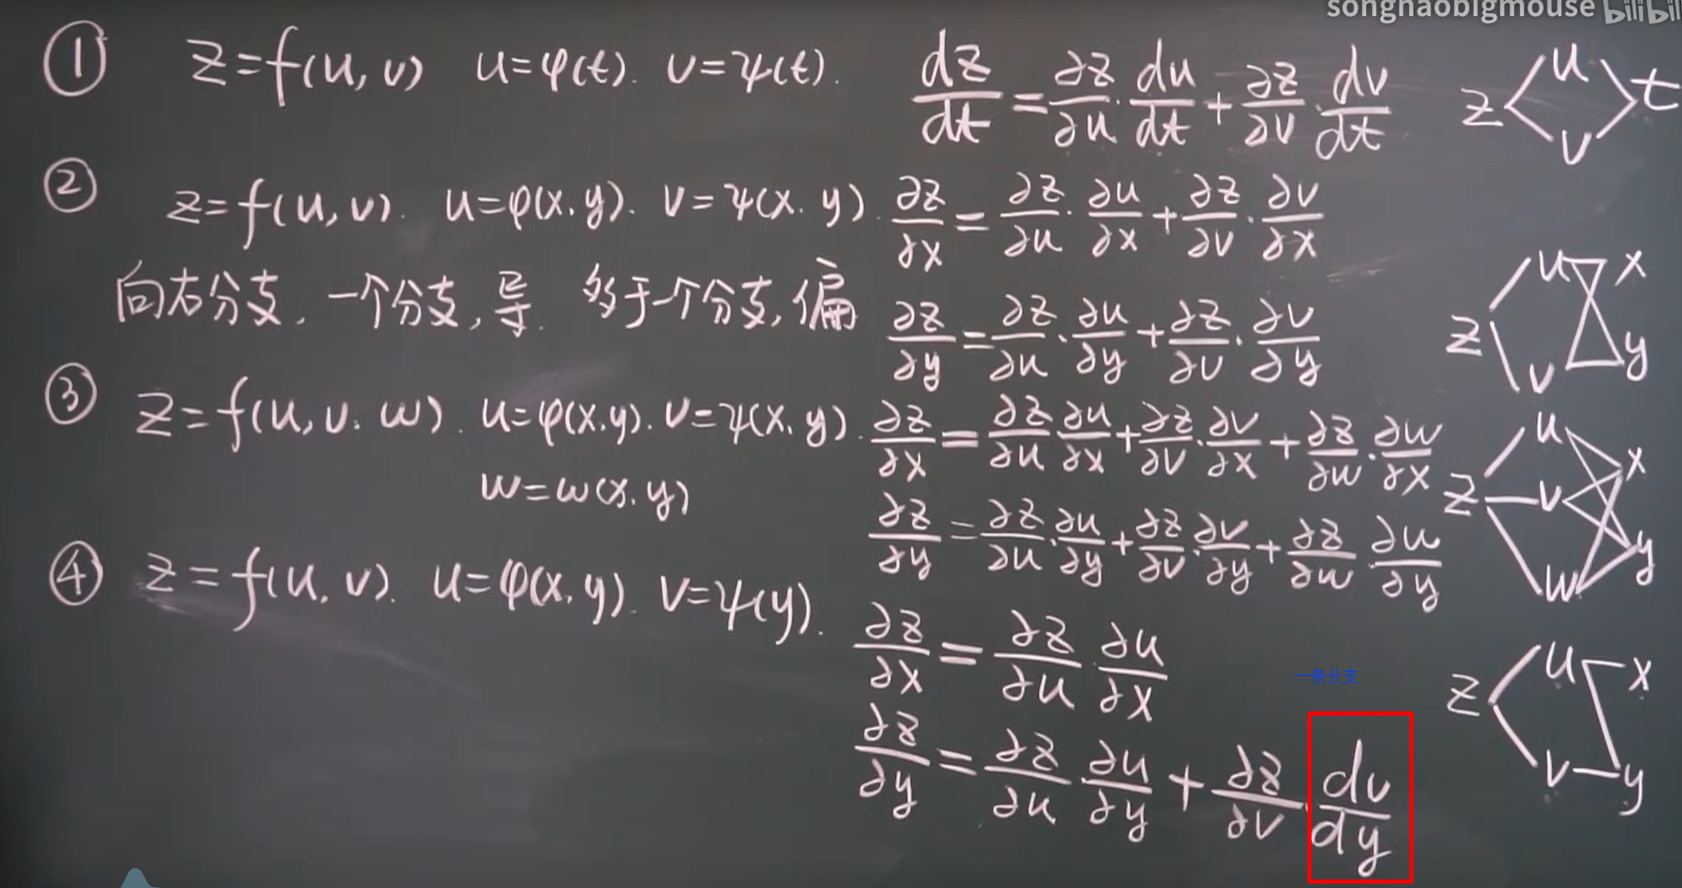 songhaobigmouse bilibili
① z=f(u,v) u=φ(t). v=ψ(t). dz/dt=∂z/∂u·du/dt+∂z/∂v·dv/dt z u v t
② z=f(u,v). u=φ(x,y). v=ψ(x,y). ∂z/∂x=∂z/∂u·∂u/∂x+∂z/∂v·∂v/∂x
向右分支, 一个分支, 导. 多于一个分支, 偏
∂z/∂y=∂z/∂u·∂u/∂y+∂z/∂v·∂v/∂y z u v x y
③ z=f(u,v,w). u=φ(x,y). v=ψ(x,y). ∂z/∂x=∂z/∂u·∂u/∂x+∂z/∂v·∂v/∂x+∂z/∂w·∂w/∂x
w=w(x,y)
∂z/∂y=∂z/∂u·∂u/∂y+∂z/∂v·∂v/∂y+∂z/∂w·∂w/∂y z u v w x y
④ z=f(u,v). u=φ(x,y). v=ψ(y). ∂z/∂x=∂z/∂u·∂u/∂x
一条分支
∂z/∂y=∂z/∂u·∂u/∂y+∂z/∂v·dv/dy z u v x y